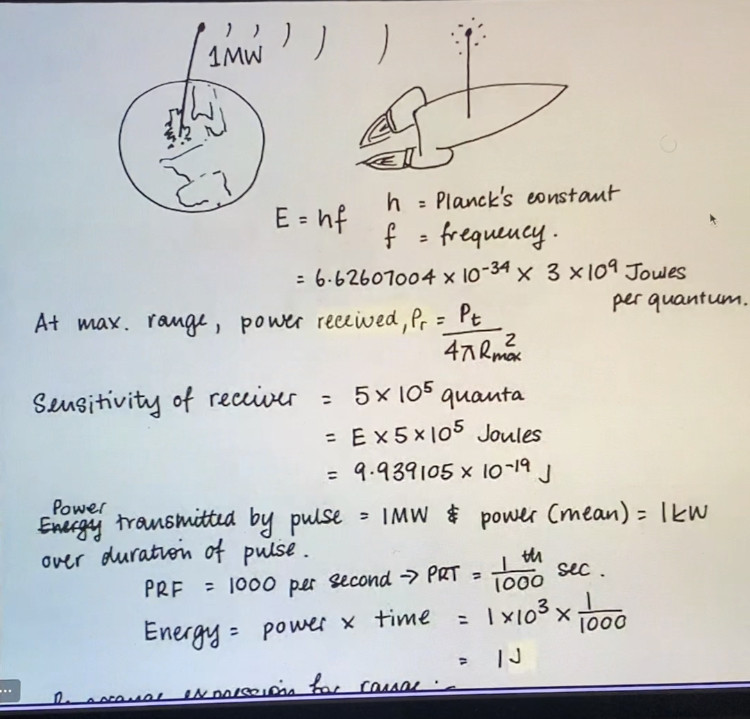 1MW
E = hf h = Planck's constant
f = frequency.
= 6.62607004 × 10⁻³⁴ × 3 × 10⁹ Joules
per quantum.
At max. range, power received, Pr = Pt / 4πRmax²
Sensitivity of receiver = 5 × 10⁵ quanta
= E × 5 × 10⁵ Joules
= 9.939105 × 10⁻¹⁹ J
Power
Energy transmitted by pulse = 1MW & power (mean) = 1kW
over duration of pulse.
PRF = 1000 per second → PRT = 1/1000 th sec.
Energy = power × time = 1 × 10³ × 1/1000
= 1J
expression for range :-